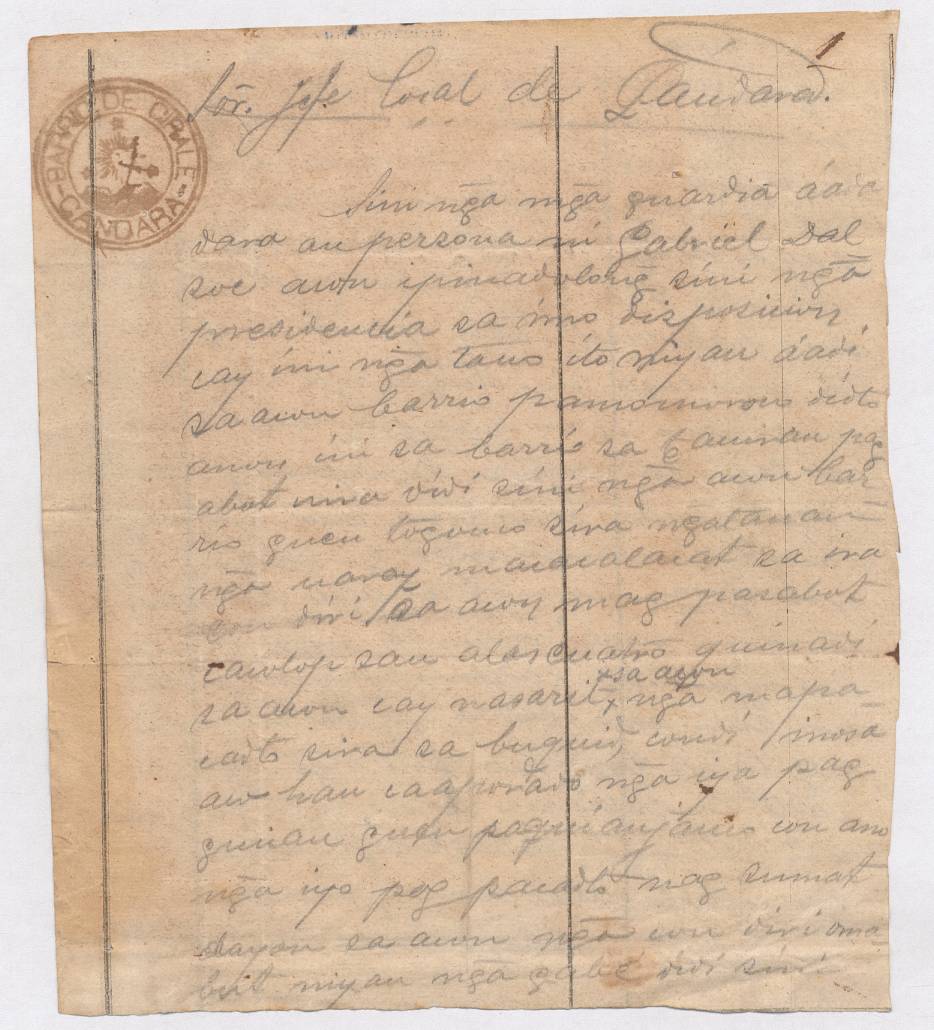 1
BARRIO DE CIRALE
GANDARA
Sor. Jefe Local de Gandara.
Sini nga mga guardia áadi
dara an persona ni Gabriel Dal
soc acon ipinadolong sini nga
presidencia sa imo disposicion
cay ini nga tauo ito niyan áadi
sa acon barrio didto
anay ini sa barrio sa pag
abot nira didi sini nga acon bar
rio guen togono sira ngatanan
nga uaray macacalacat sa ira
con diri sa acon mag pasabot
caolop san alas cuatro quinadi
sa acon cay nasarit sa acon nga mapa
cadto sira sa buquid, condi inosa
aco han nga iya pag
guican guen con ano
nga iyo pag pacadto nag sumat
dayon sa acon nga con diri oma
but niyan nga gabé didi sini